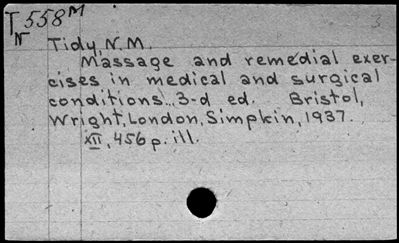 T 558 M
N
3
Tidy, N. M.
Massage and remedial exer-
cises in medical and surgical
conditions... 3-d ed. Bristol,
Wright, London, Simpkin, 1937.
XII, 456 p. ill.